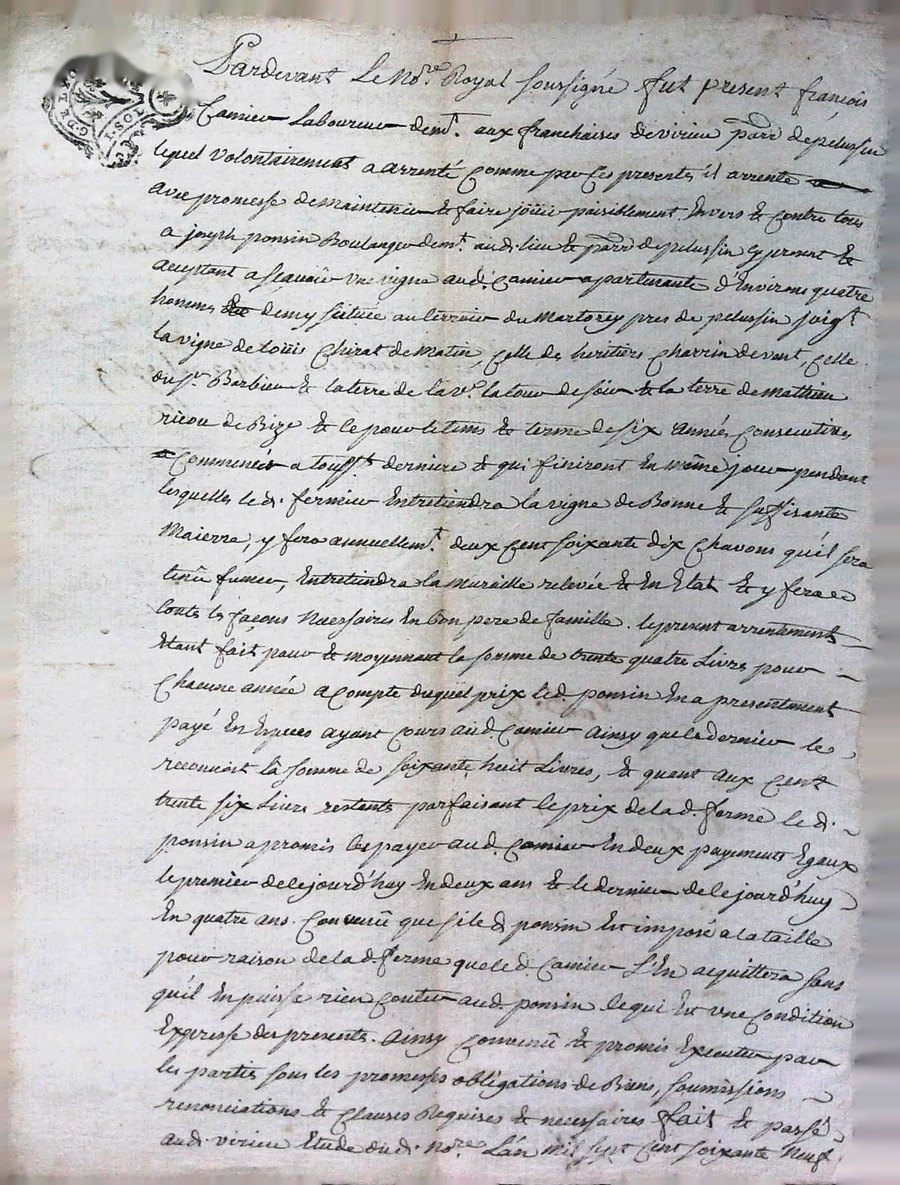 Pardevant Le No.re Royal soussigné fut present françois
Camier Laboureur dem.t aux franchises de virieu parr de pelussin
lequel volontairement a arrenté comme par ces presentes il arrente
avec promesse de maintenir & faire joüir paisiblement Envers & contre tous
a joseph ponsin Boulanger dem.t aud. lieu & parr de pelussin cy present &
aceptant a sçavoir vne vigne aud. Camier apartenante d'Environs quatre
hommes demy scituée au terroir du Martorey pres de pelussin joig.t
la vigne de loüis Chirat de matin, celle des heritiers Charrin devant, celle
du s.r Barbier & la terre de la v.e latour de soir & la terre de mathieu
ricou de Bize & ce pour le tems & terme de six années consecutives
commencés a touss.ts derniere & qui finiront En même jour pendant
lesquelles le d. fermier Entretiendra la vigne de Bonne & suffisante
Maierre, y fera annuellem.t deux cent soixante dix chavons qu'il sera
tenü fumer, Entretiendra la muraille relevée & En Etat & y fera
toutes les façons necessaires En bon pere de famille. le present arrentement
étant fait pour & moyennant la somme de trente quatre Livres pour
Chacune année a compte duquel prix led ponsin En a presentement
payé En Especes ayant cours aud. Camier ainsy que le dernier le
reconnoit la somme de soixante huit Livres, & quant aux cent
trente six Livres restants parfaisant le prix de lad. ferme le d.
ponsin a promis les payer aud. Camier En deux payements Egaux
le premier de cejourd'huy En deux ans & le dernier de cejourd'huy
En quatre ans. Convenü que si le d ponsin Est imposé a la taille
pour raison de lad. ferme que le d Camier L'En acquittera sans
qu'il En puisse rien couter aud. ponsin ce qui Est vne condition
Expresse des presentes. Ainsy convenü & promis Executer par
les parties sous les promesses obligations de Biens, soumissions
renonciations & clauses Requises & necessaires fait & passé
aud. virieu Etude du d. No.re L'an mil sept cent soixante neuf